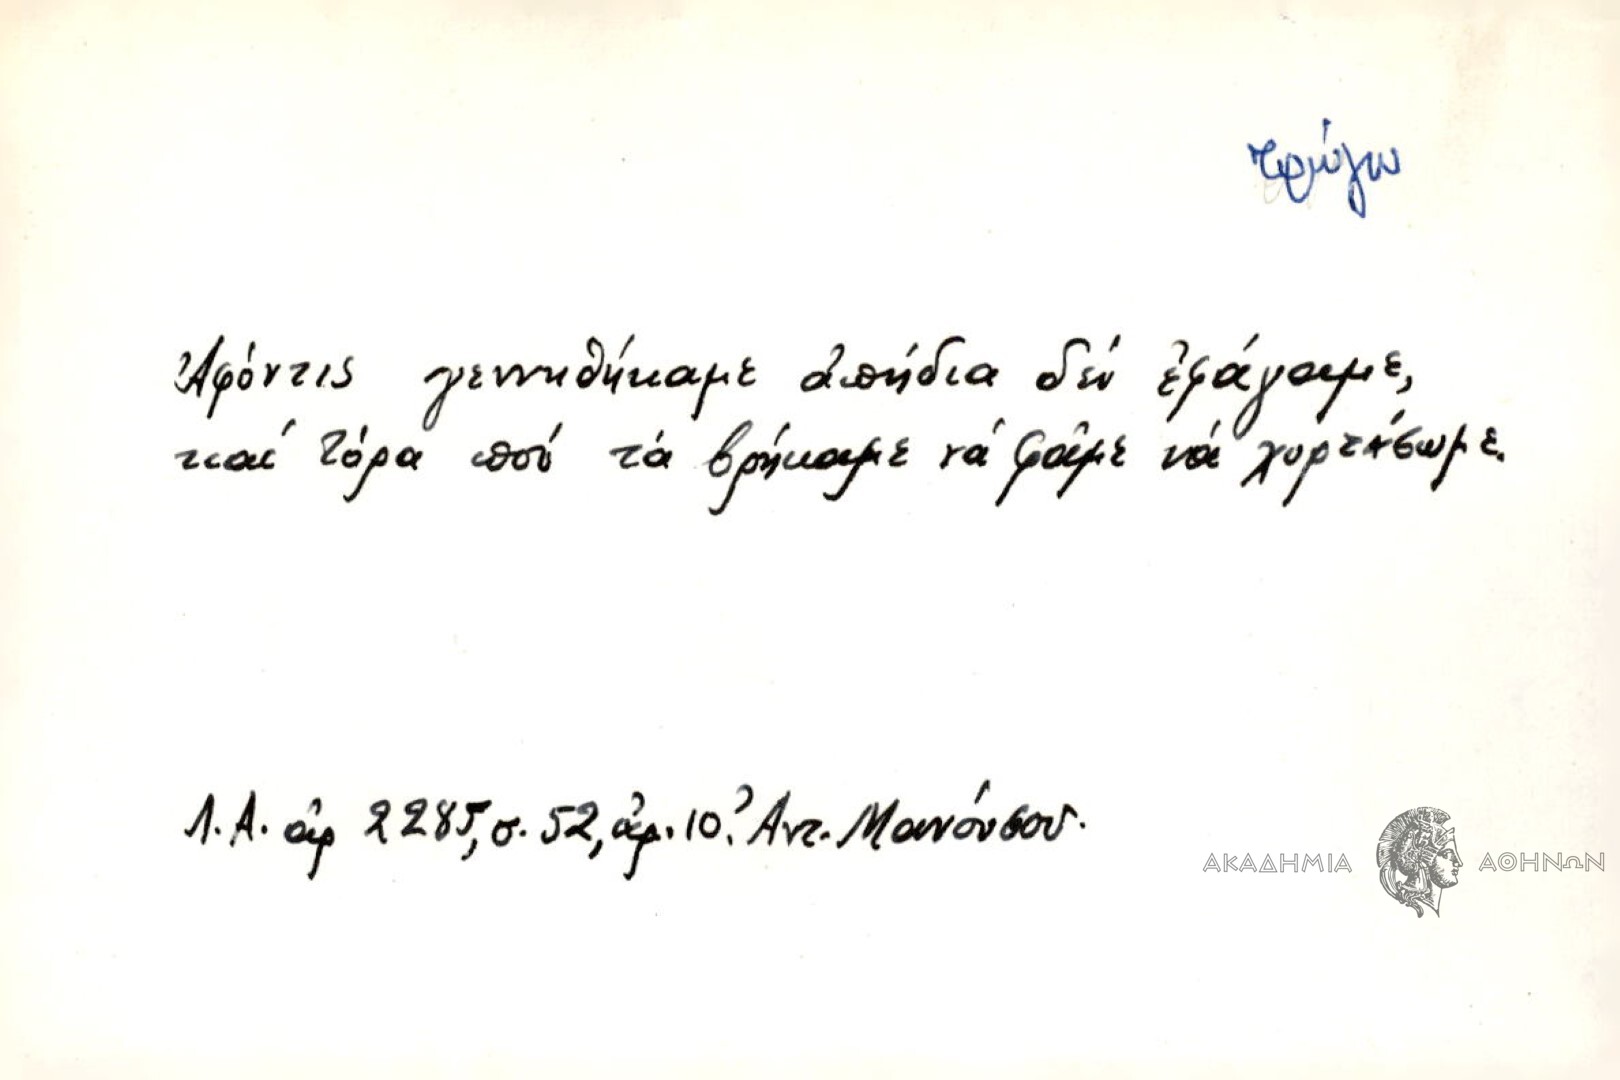 τρώγω
Ἀφόντις γεννηθήκαμε ἀπήδια δέν ἐφάγαμε,
καί τόρα πού τά βρήκαμε νά φᾶμε νά χορτάσωμε.
Λ.Α. ἀρ 2285, σ. 52, ἀρ. 10. Ἀντ. Μανούσου.
ΑΚΑΔΗΜΙΑ ΑΘΗΝΩΝ